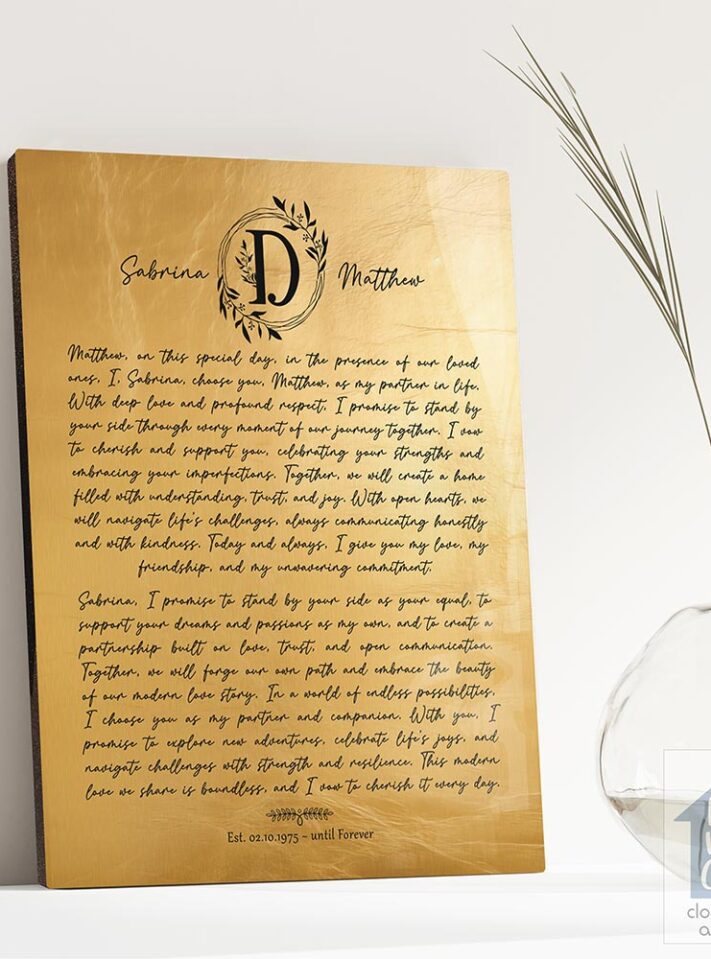 Sabrina D Matthew
Matthew, on this special day, in the presence of our loved
ones, I, Sabrina, choose you, Matthew, as my partner in life.
With deep love and profound respect, I promise to stand by
your side through every moment of our journey together. I vow
to cherish and support you, celebrating your strengths and
embracing your imperfections. Together, we will create a home
filled with understanding, trust, and joy. With open hearts, we
will navigate life's challenges, always communicating honestly
and with kindness. Today and always, I give you my love, my
friendship, and my unwavering commitment.
Sabrina, I promise to stand by your side as your equal, to
support your dreams and passions as my own, and to create a
partnership built on love, trust, and open communication.
Together, we will forge our own path and embrace the beauty
of our modern love story. In a world of endless possibilities,
I choose you as my partner and companion. With you, I
promise to explore new adventures, celebrate life's joys, and
navigate challenges with strength and resilience. This modern
love we share is boundless, and I vow to cherish it every day.
Est. 02.10.1975 ~ until Forever